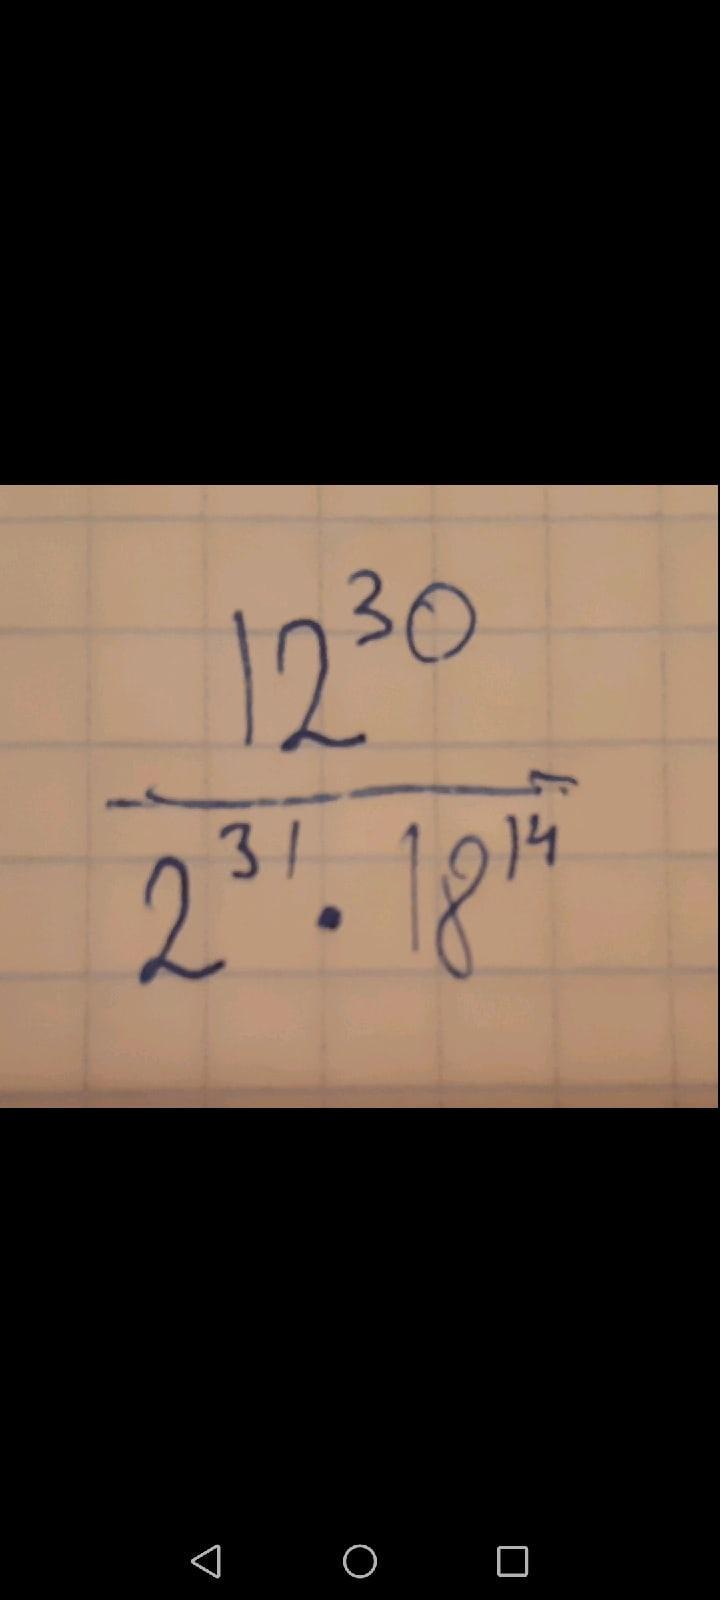 12³⁰
2³¹ · 18¹⁴